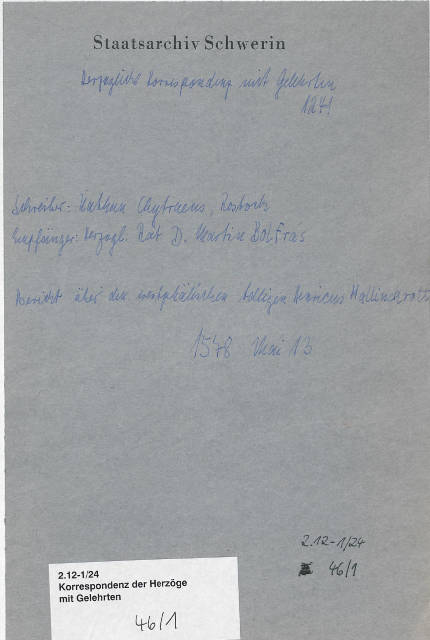 Staatsarchiv Schwerin
Herzogliche Korrespondenz mit Gelehrten
1241
Schreiber: Nathan Chytraeus, Rostock
Empfänger: Herzogl. Rat D. Martin Bolfras
Bericht über den westphälischen Adligen Henricus Hallinckrott
1578 Mai 13
2.12-1/24
46/1
2.12-1/24
Korrespondenz der Herzöge
mit Gelehrten
46/1